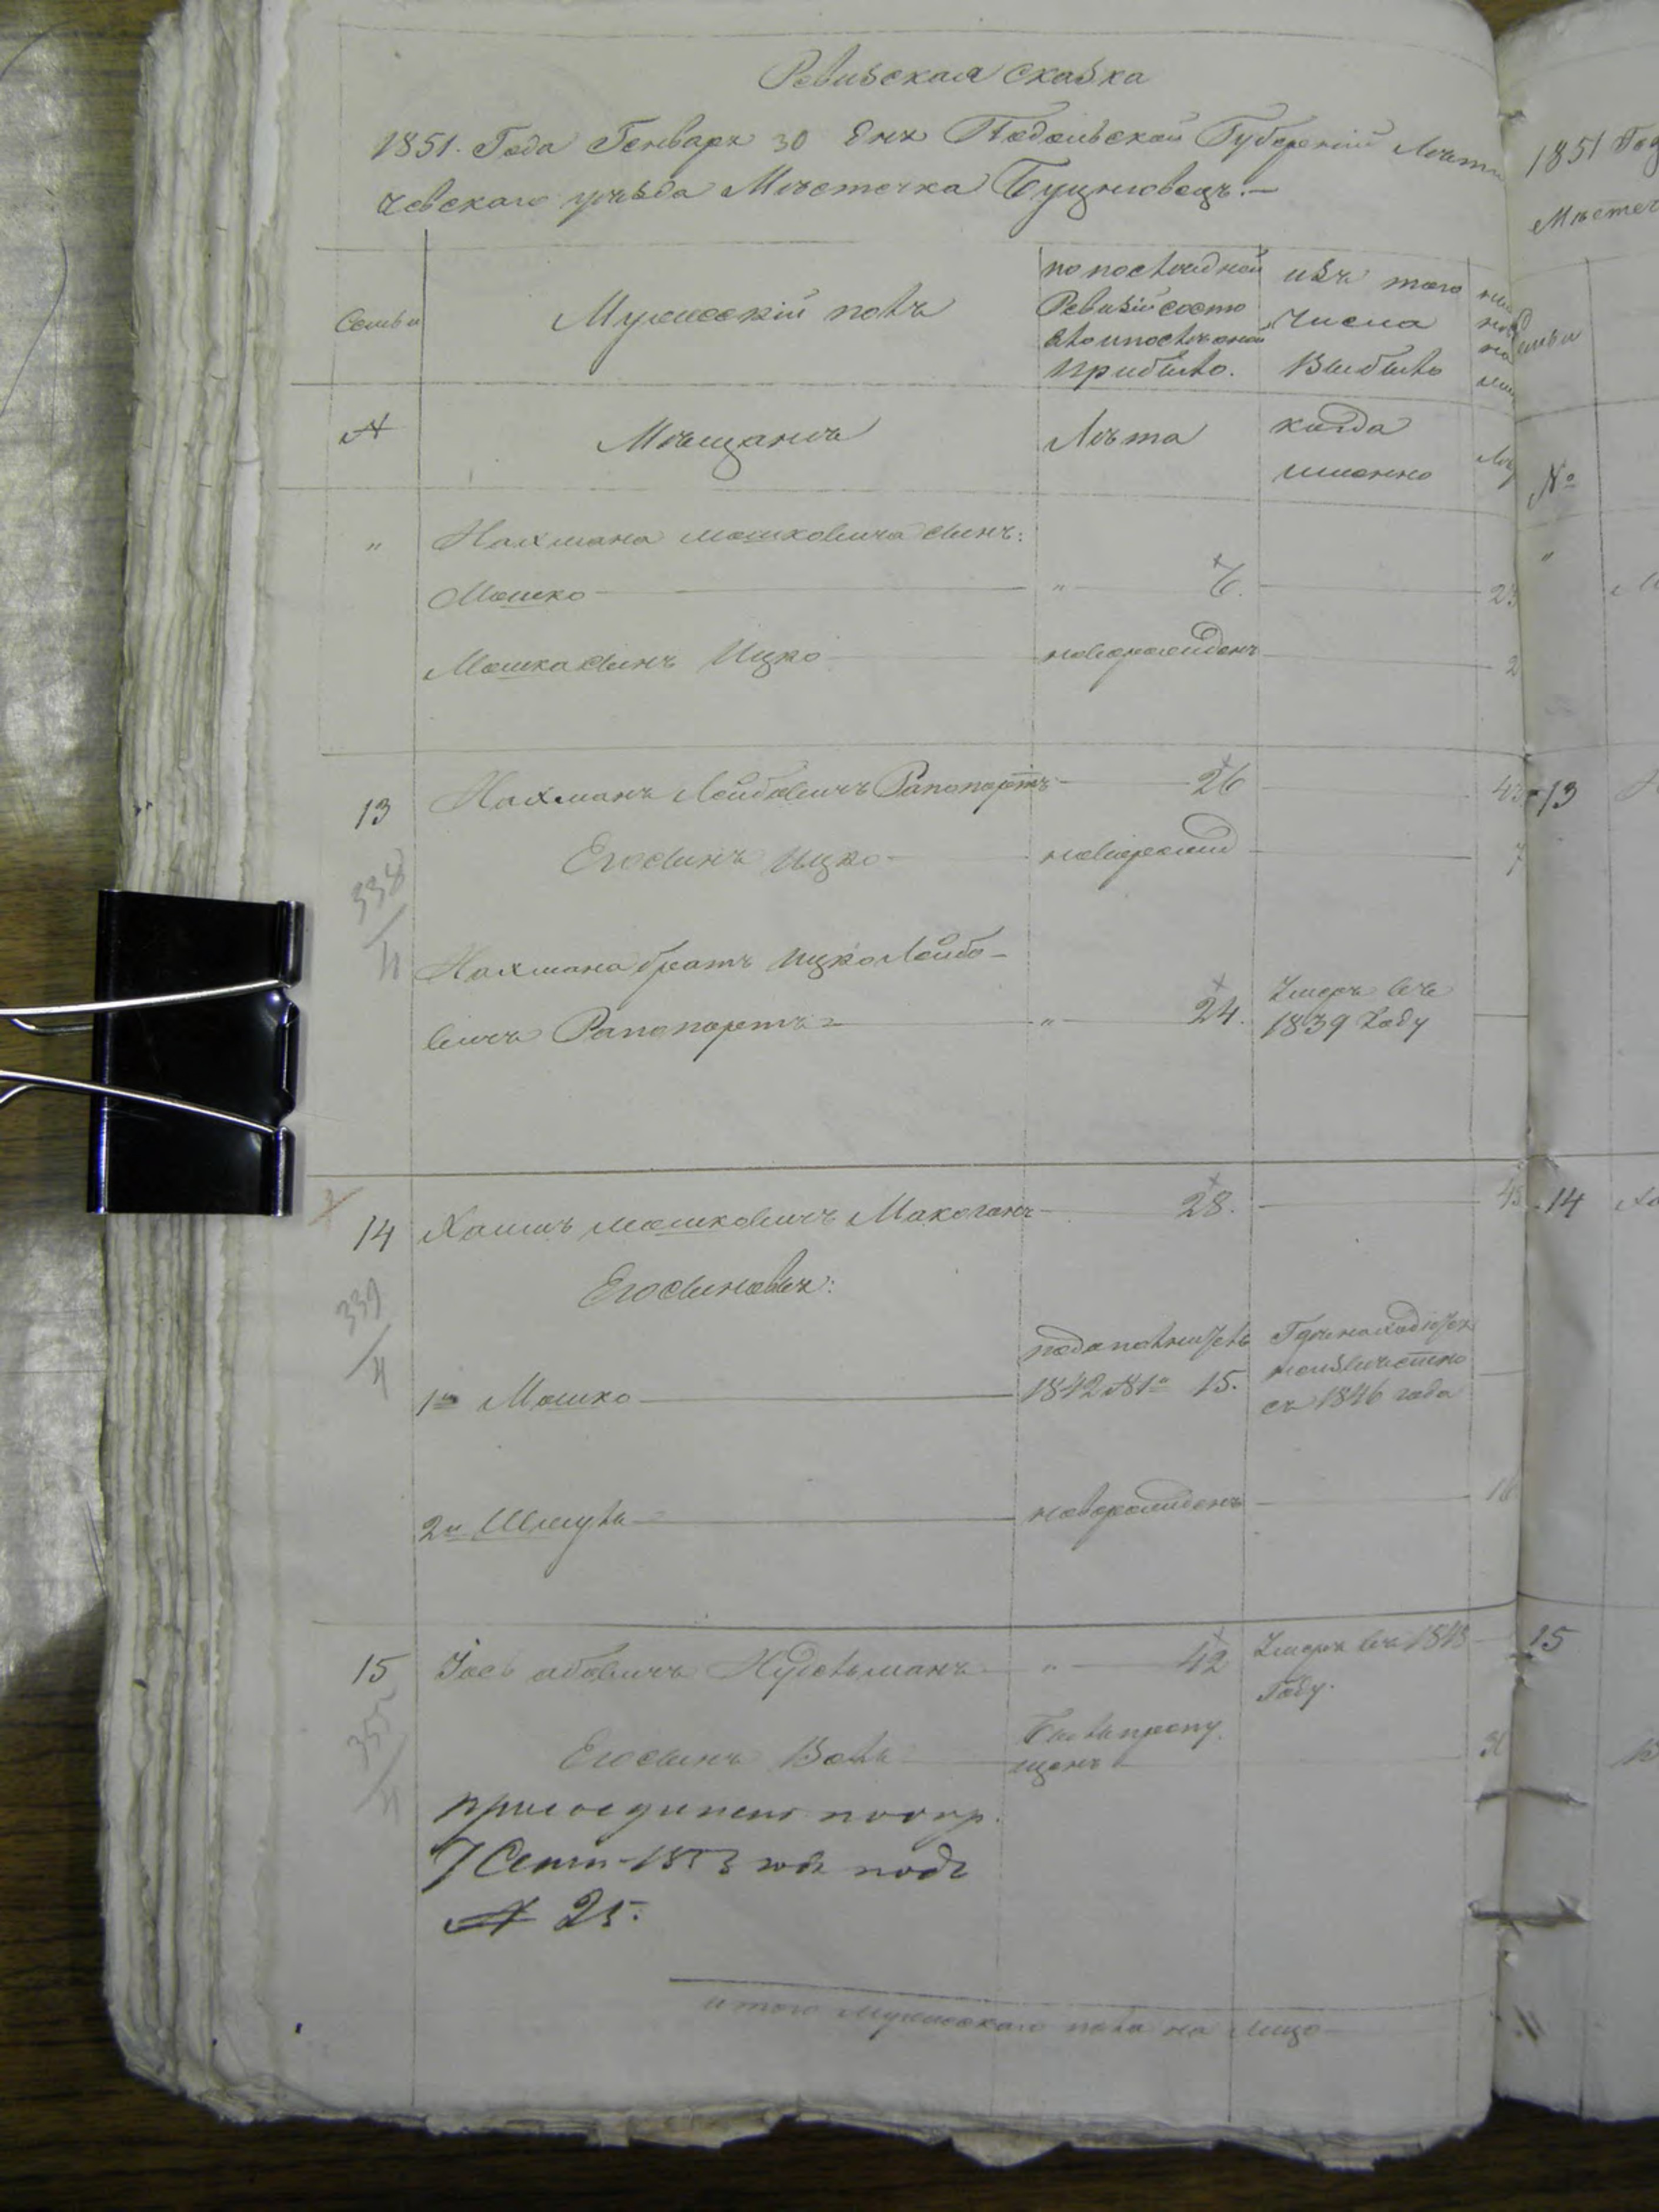 Ревизская сказка
1851. Года Генваря 30 дня Подольской Губерніи Лѣти
чевскаго уѣзда Мѣстечка Буцновецъ.—
Семьи
Мужескій полъ
по последней
Ревизіи состо
яло и после оной
прибыло.
изъ того
числа
Выбыло
№
Мѣщанъ
Лѣта
когда
именно
" Нахмана Мошковича сынъ:
Мошко " 6.
Мошка сынъ Ицко новорожденъ 2
13 Нахманъ Лейбовичъ Рапопортъ 26
338
Его сынъ Ицко новорожд 7
Нахмана братъ Ицко Лейбо-
вичъ Рапопортъ " 24. Умеръ въ
1839 Году
14 Хаимъ Мошковичъ Макоганъ 28. 45
339
Его сыновья:
1й Мошко 1842 № 15. съ 1846 года
2й Шмуль новорожденъ 16
15 Іось Абовичъ Нудельманъ " 42 Умеръ въ
Году.
Его сынъ Волъ Былъ пропу
щенъ
присоединенъ по
7 Сент. 1853 года подъ
№ 25.
итого мужескаго пола на лицо
1851 Год
Мѣстеч
№
"
13
14
15